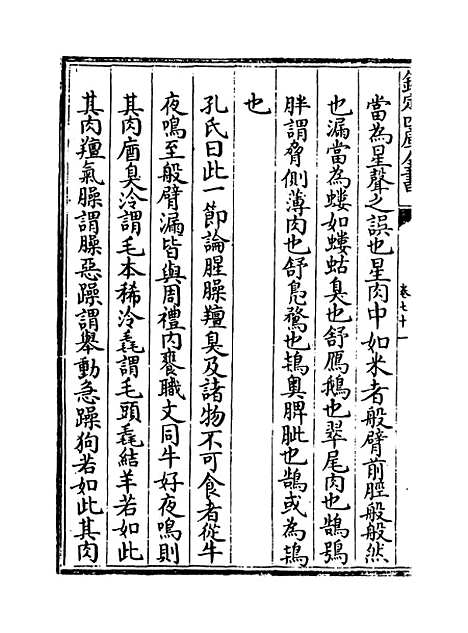 欽定四庫全書
卷七十一
當為星聲之誤也星肉中如米者般臂前脛般般然
也漏當為螻如螻蛄臭也舒鴈鵝也翠尾肉也鵠鴞
胖謂脅側薄肉也舒鳧鶩也鴇奧脾䏶也鵠或為鴇
也
孔氏曰此一節論腥臊羶臭及諸物不可食者從牛
夜鳴至般臂漏皆與周禮内饔職文同牛好夜鳴則
其肉庮臭泠謂毛本稀泠毳謂毛頭毳結羊若如此
其肉羶氣臊謂臊惡躁謂舉動急躁狗若如此其肉